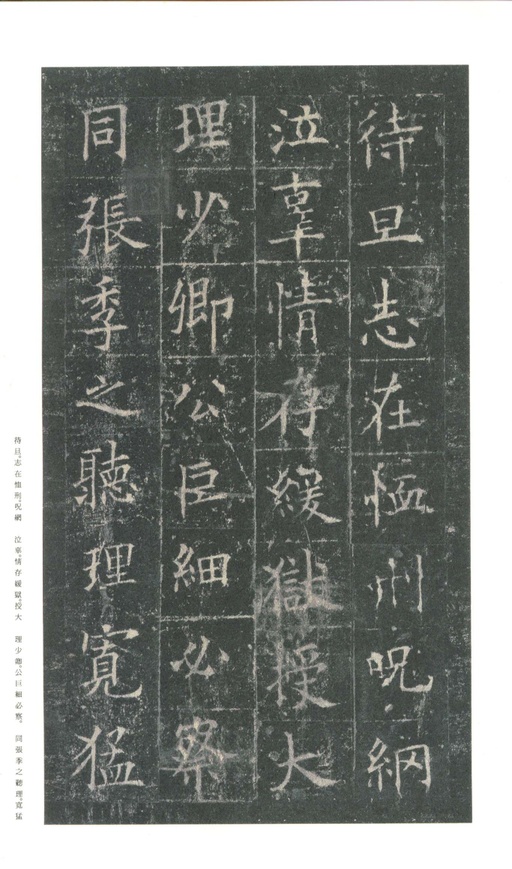 待旦志在恤刑呪網
泣辜情存緩獄授大
理少卿公巨細必察
同張季之聽理寬猛
待旦。志在恤刑。呪網 泣辜。情存緩獄。授大 理少卿。公巨細必察。 同張季之聽理。寬猛